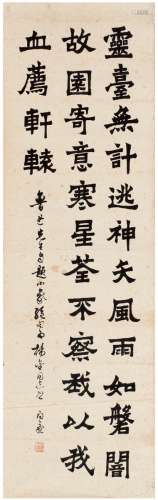 靈臺無計逃神矢風雨如磐闇
故園寄意寒星荃不察我以我
血薦軒轅
魯迅先生自題小象